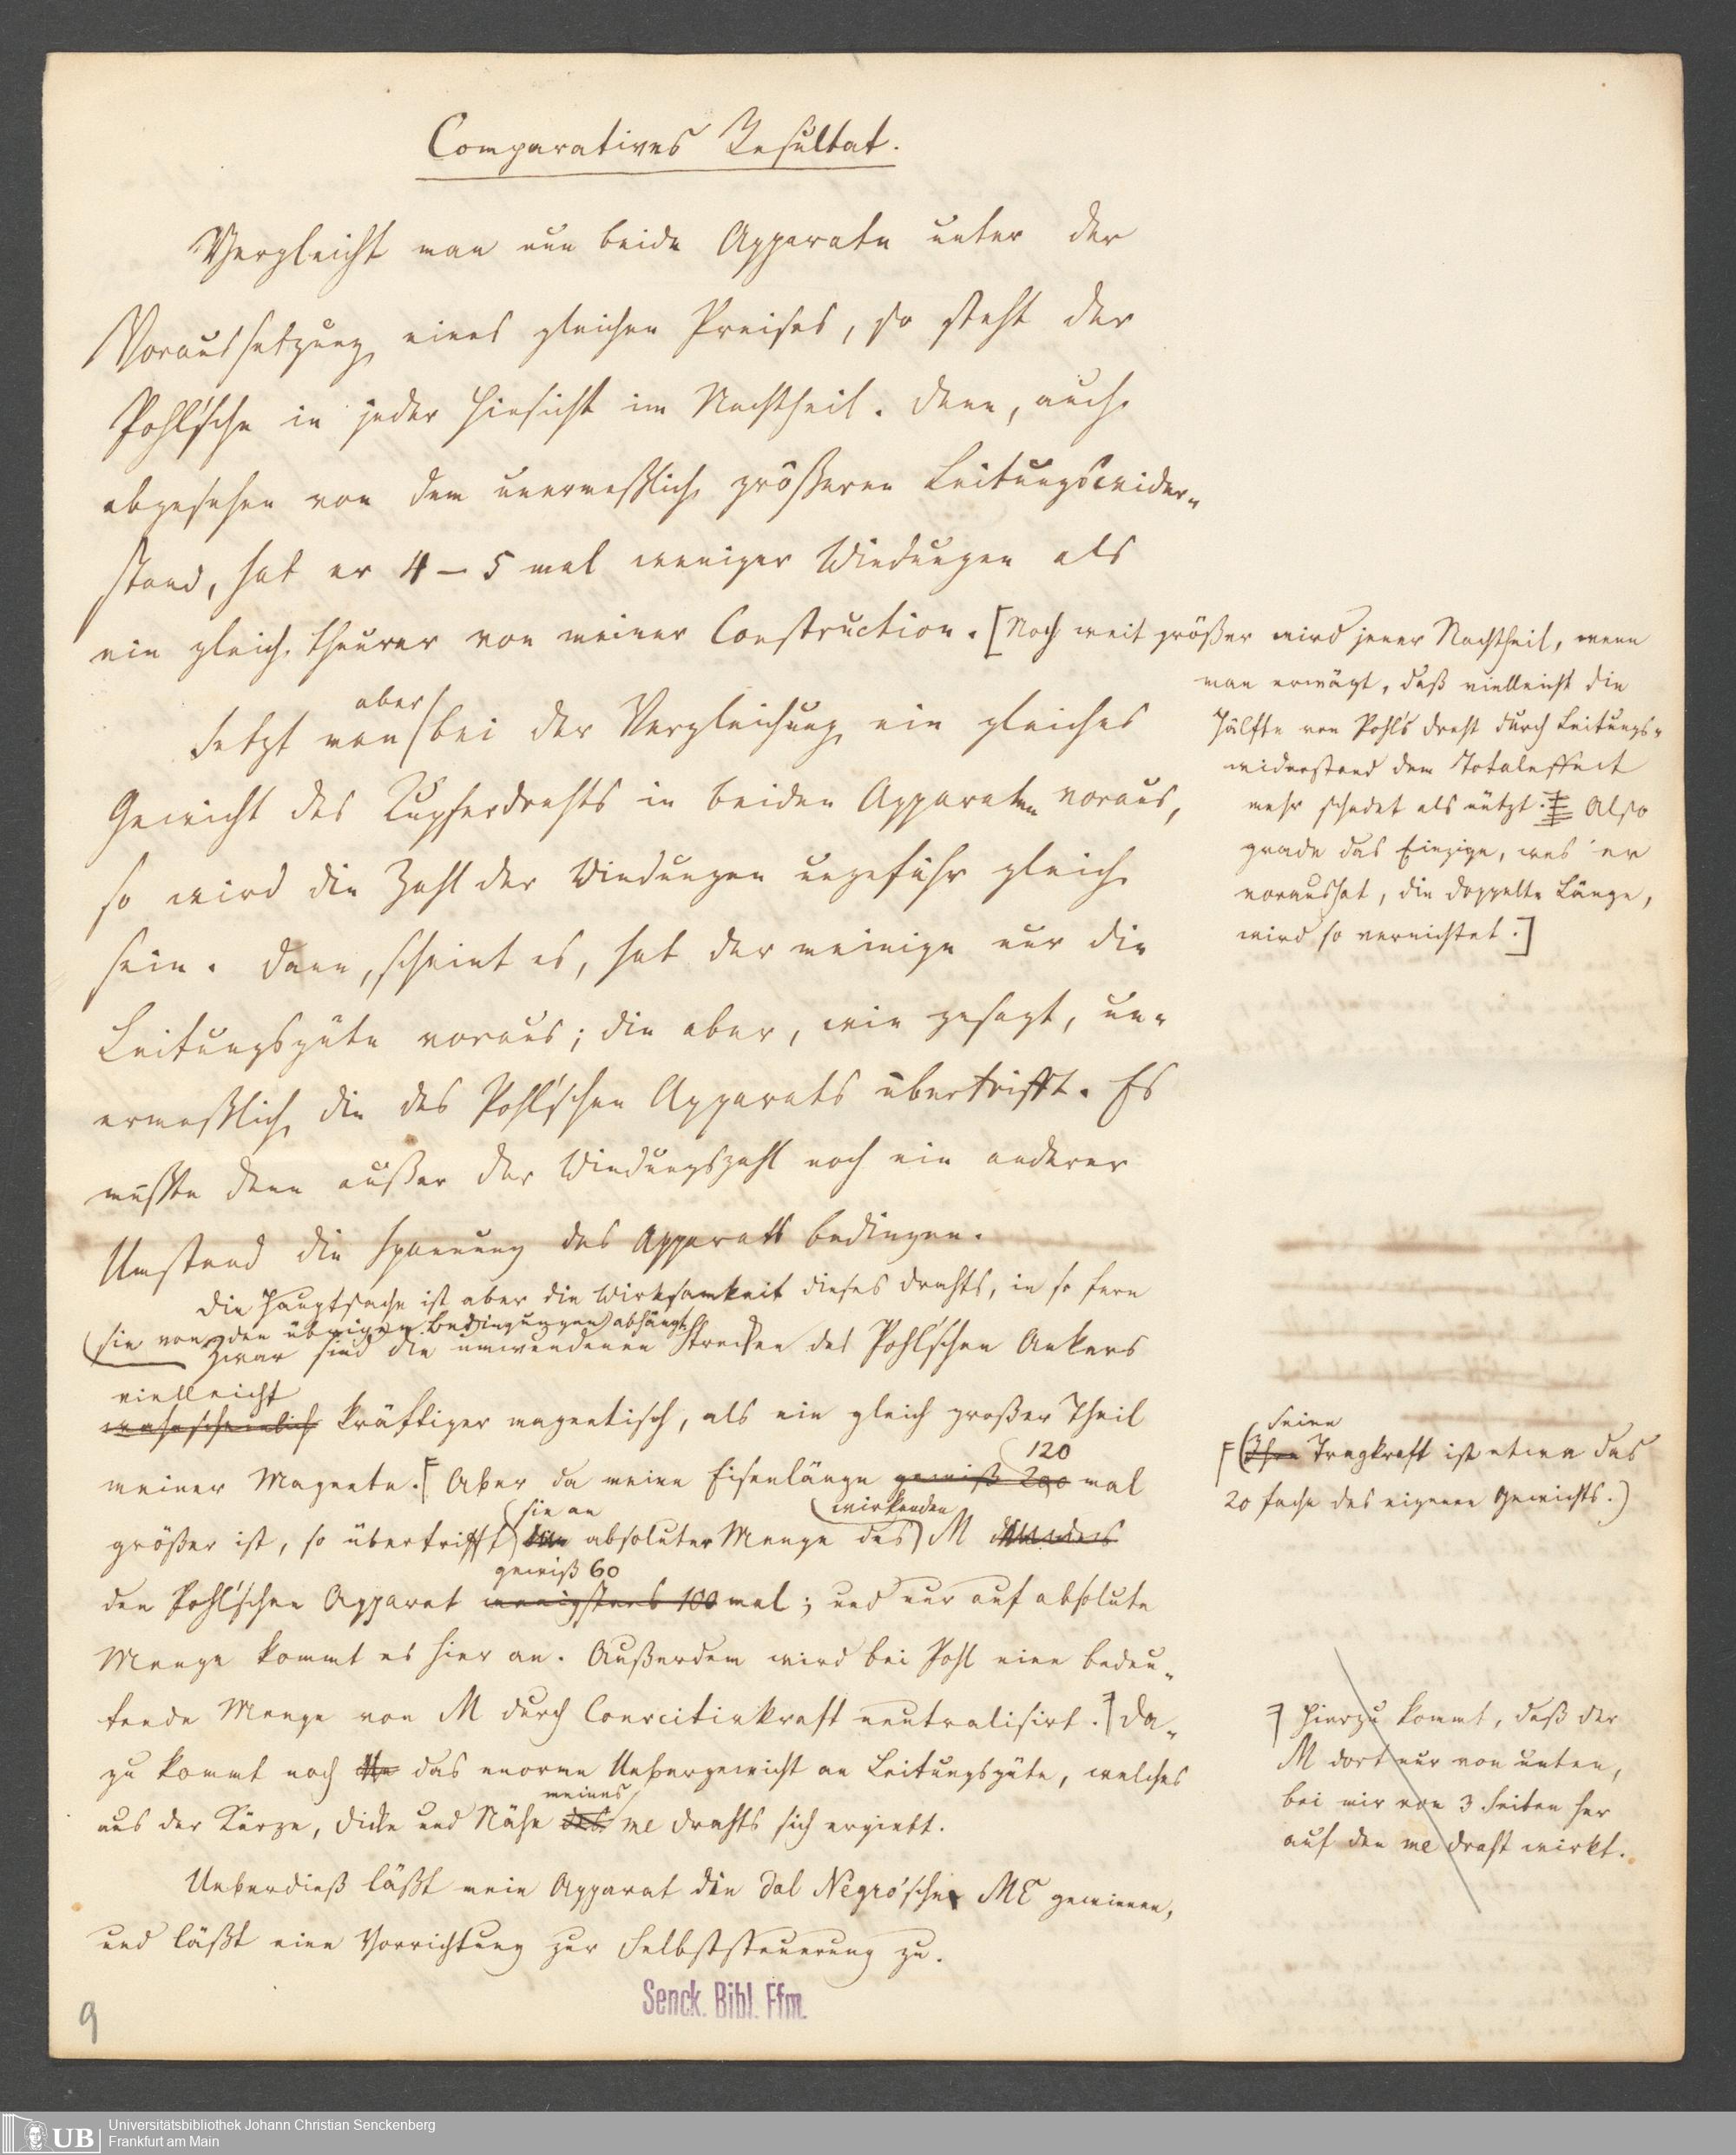 Comparatives Resultat.
Vergleicht man nun beide Apparate unter der
Voraussetzung eines gleichen Preises, so steht der
Pohl'sche in jeder Hinsicht im Nachtheil. Denn, auch
abgesehen von dem unermeßlich größeren Leitungswider-
stand, hat er 4–5 mal weniger Windungen als
ein gleich theurer von meiner Construction. [Noch weit größer wird jener Nachtheil, wenn
man erwägt, daß vielleicht die
Hälfte von Pohl's Draht durch Leitungs-
widerstand dem Totaleffect
mehr schadet als nützt. Also
grade das Einzige, was er
voraushat, die doppelte Länge,
wird so vernichtet.]
aber
Setzt man bei der Vergleichung ein gleiches
Gewicht des Kupferdrahts in beiden Apparaten voraus,
so wird die Zahl der Windungen ungefähr gleich
sein. Dann, scheint es, hat der meinige nur die
Leitungsgüte voraus; die aber, wie gesagt, un-
ermeßlich die des Pohl'schen Apparats übertrifft. Es
müßte denn außer der Windungszahl noch ein anderer
Umstand die Spannung des Apparats bedingen.
Die Hauptsache ist aber die Wirksamkeit dieses Drahts, in so fern
(sie von den übrigen Bedingungen abhängt.
Zwar sind die umwundenen Strecken des Pohl'schen Ankers
vielleicht
wahrscheinlich kräftiger magnetisch, als ein gleich großer Theil
120
meiner Magnete. Aber da meine Eisenlänge gewiß 200 mal
Seine
(Ihre Tragkraft ist etwa das
20 fache des eigenen Gewichts.)
sie an wirkenden
größer ist, so übertrifft absoluter Menge des M
gewiß 60
den Pohl'schen Apparat wenigstens 100 mal; und nur auf absolute
Menge kommt es hier an. Außerdem wird bei Pohl eine bedeu-
tende Menge von M durch Coercitivkraft neutralisirt. Da-
zu kommt noch das enorme Uebergewicht an Leitungsgüte, welches
meines
aus der Kürze, Dicke und Nähe des me Drahts sich ergiebt.
Hierzu kommt, daß der
M dort nur von unten,
bei mir von 3 Seiten her
auf den me Draht wirkt.
Ueberdieß läßt mein Apparat die dal Negro'sche ME gewinnen,
und läßt eine Vorrichtung zur Selbststeuerung zu.
Senck. Bibl. Ffm.
9
UB
Universitätsbibliothek Johann Christian Senckenberg
Frankfurt am Main